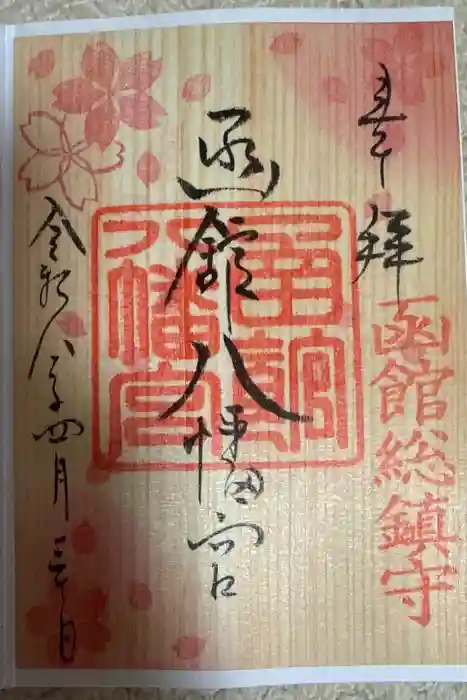 奉拝
函館総鎮守
函館八幡宮
函館八幡宮
令和八年四月三十日